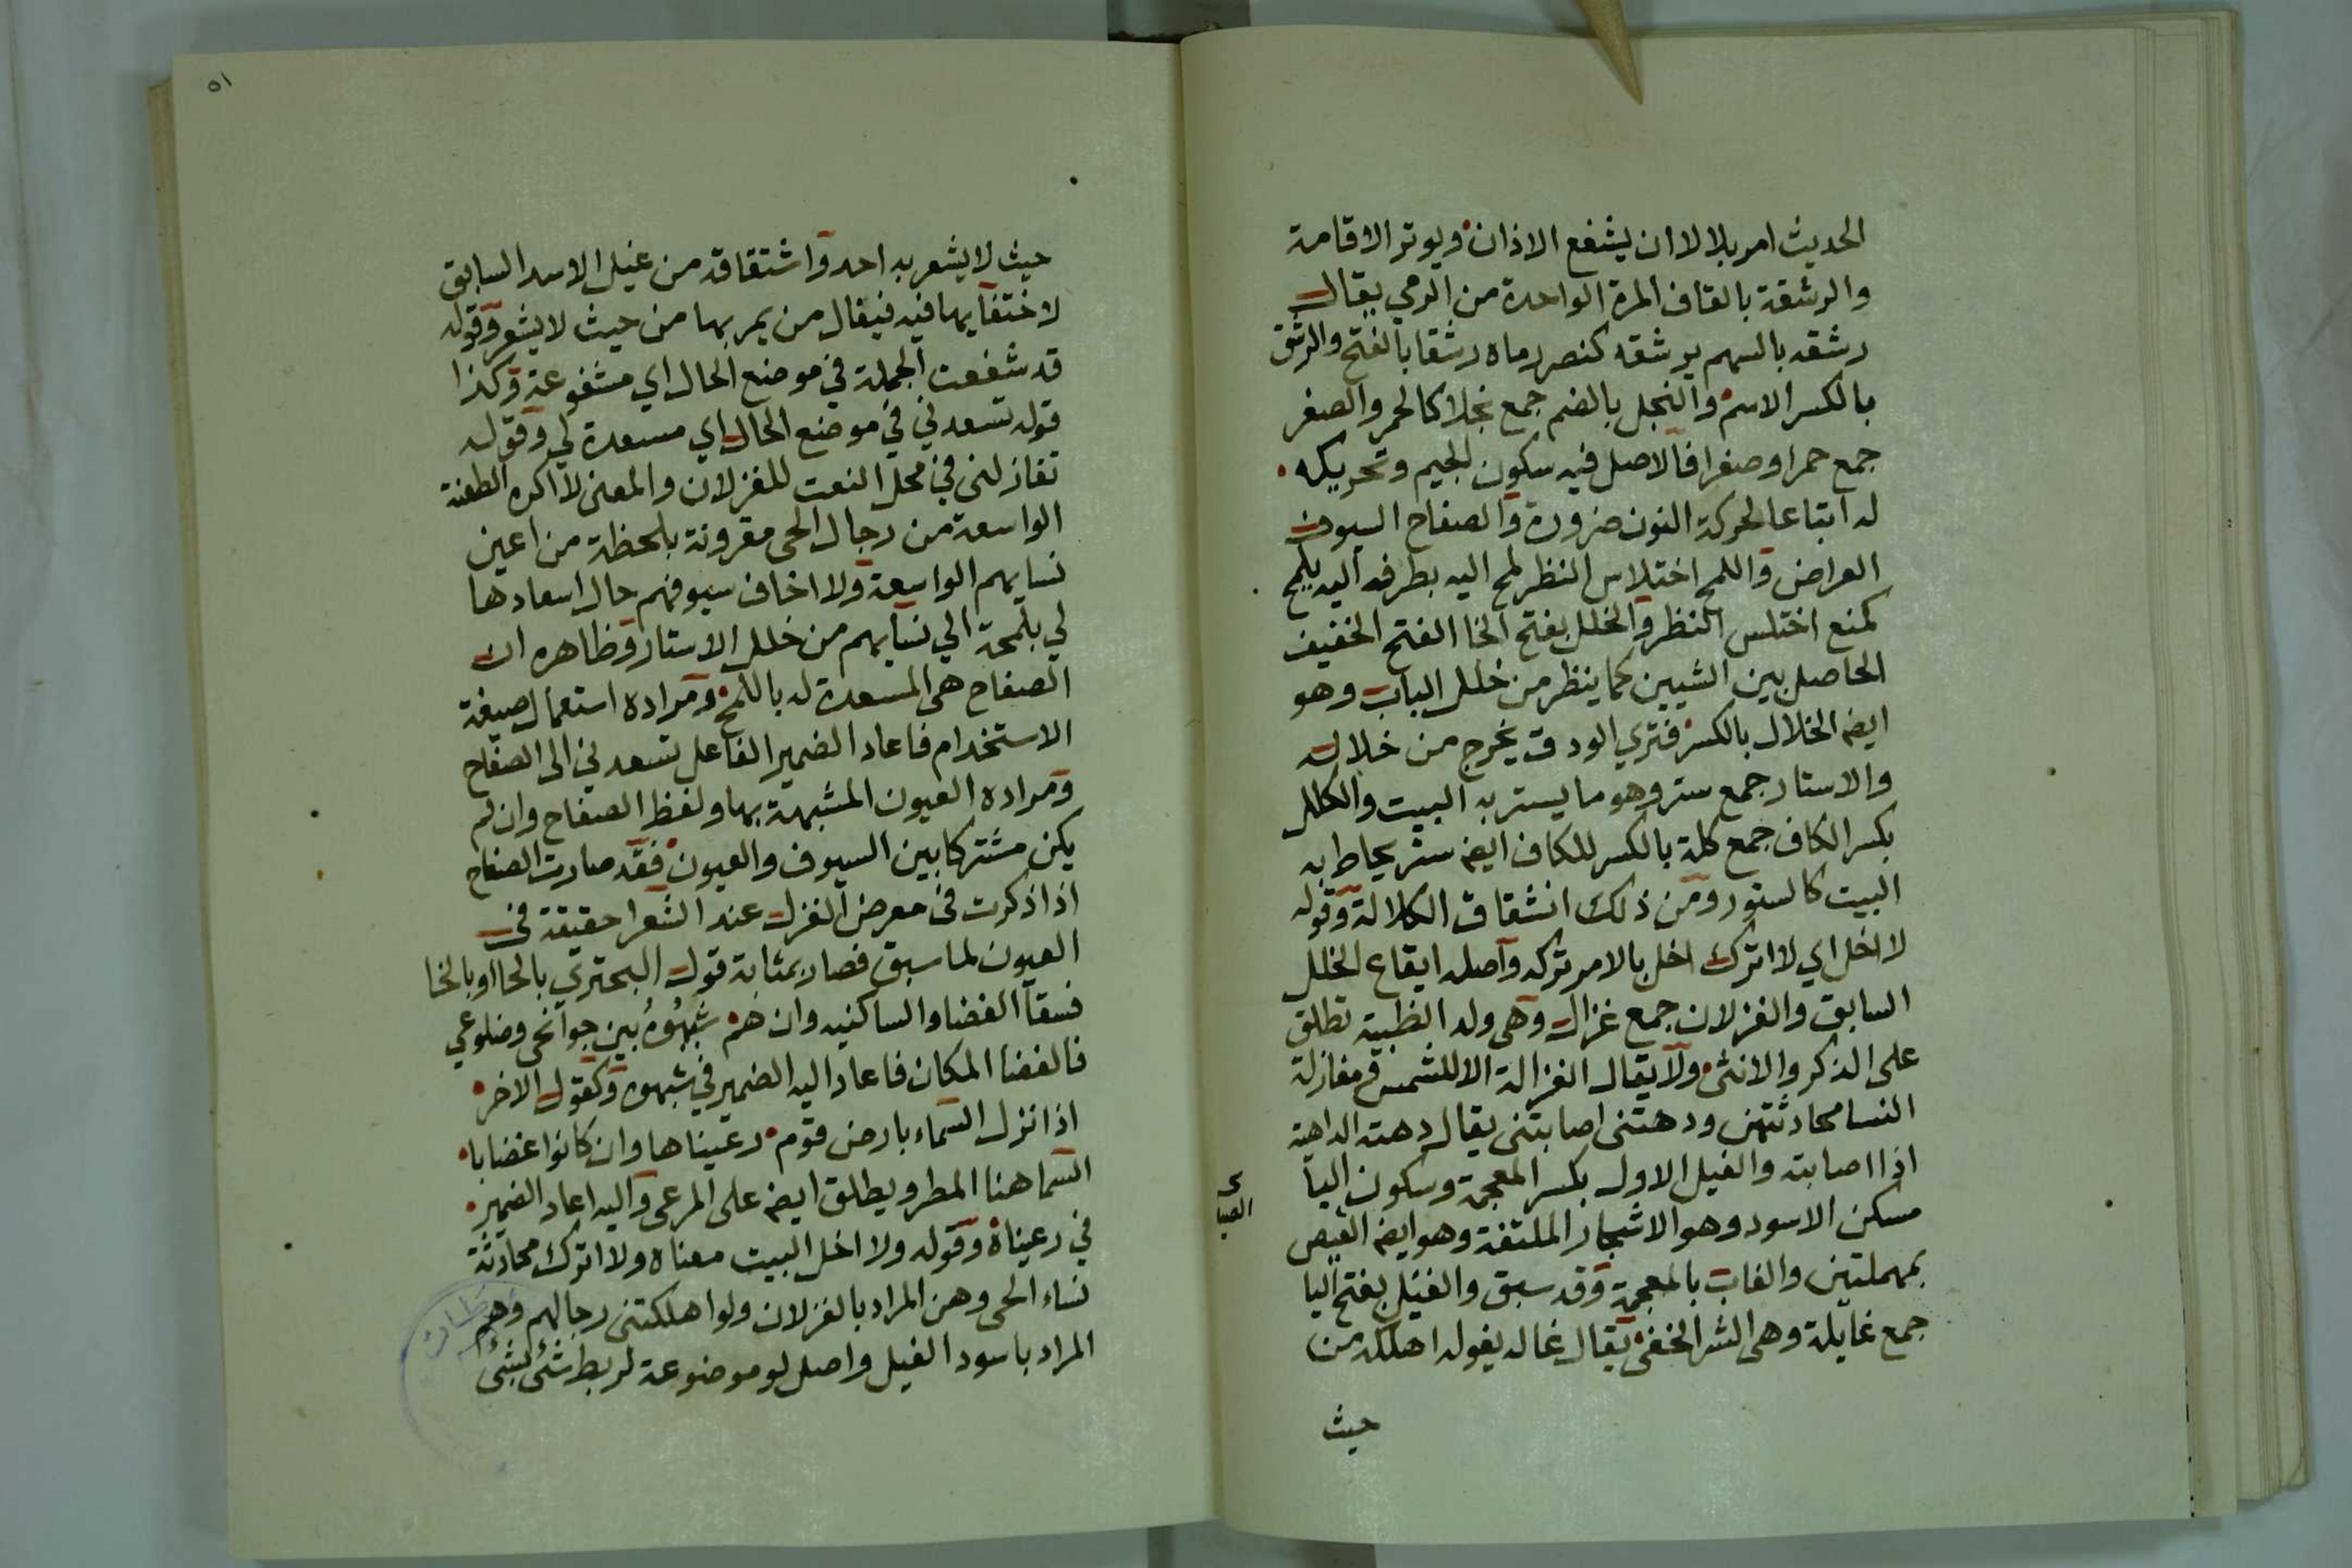 الحديث امر بلالا ان يشفع الاذان ويوتر الاقامة
والرشقة بالقاف المرة الواحدة من الرمي يقال
رشقه بالسهم يرشقه كنصر رماه رشقا بالفتح والرشق
بالكسر الاسم والنجل بالضم جمع نجلا كالحمر والصفر
جمع حمرا وصفرا فالاصل فيه سكون الجيم وتحريكه
له اتباعا لحركة النون ضرورة والصفاح السيوف
العراض واللمح اختلاس النظر لمح اليه بطرفه اليه يلمح
كمنع اختلس النظر والخلل بفتح الخا الفتح الخفيف
الحاصل بين الشيين كما ينظر من خلل الباب وهو
ايضا الخلال بالكسر فترى الودق يخرج من خلاله
والاستار جمع ستر وهو ما يستر به البيت والكلل
بكسر الكاف جمع كلة بالكسر للكاف ايضا ستر يحاط به
البيت كالستور ومن ذلك انشقاق الكلالة وقوله
لا اخل اي لا اترك اخل بالامر تركه واصله ايقاع الخلل
السابق والغزلان جمع غزال وهي ولد الظبية تطلق
على الذكر والانثى ولا يقال الغزالة الا للشمس ومغازلة
النسا محادثتهن ودهتني اصابتني يقال دهته الداهية
اذا اصابته والغيل الاول بكسر المعجمة وسكون اليا
مسكن الاسود وهو الاشجار الملتفة وهو ايضا العيص
بمهملتين والغاب بالمعجمة وقد سبق والغيل بفتح اليا
جمع غايلة وهي الشر الخفي يقال غاله يغوله اهلكه من
حيث
٥١
حيث لا يشعر به احد واشتقاقه من غيل الاسد السابق
لاختفايها فيه فيقال من يمر بها من حيث لا يشعر وقوله
قد شفعت الجملة في موضع الحال اي مشفوعة وكذا
قوله تسعدني في موضع الحال اي مسعدة لي وقوله
تغازلني في محل النعت للغزلان والمعنى لا اكره الطعنة
الواسعة من رجال الحي مقرونة بلحظة من اعين
نسايهم الواسعة ولا اخاف سيوفهم حال اسعادها
لي بلمحة الي نسايهم من خلل الاستار وظاهره ان
الصفاح هي المسعدة له باللمح ومراده استعمال صيغة
الاستخدام فاعاد الضمير الفاعل تسعدني الى الصفاح
ومراده العيون المشبهة بها ولفظ الصفاح وان لم
يكن مشتركا بين السيوف والعيون فقد صارت الصفاح
اذا ذكرت في معرض الغزل عند الشعرا حقيقة في
العيون لما سبق فصار بمثابة قول البحتري بالحا او بالخا
فسقا الغضا والساكنيه وان هم شبوه بين جوانحي وضلوعي
فالغضا المكان فاعاد اليه الضمير في شبوه وكقول الاخر
اذا نزل السماء بارض قوم رعيناها وان كانوا غضابا
السما هنا المطر ويطلق ايضا على المرعى واليه اعاد الضمير
في رعيناه وقوله ولا اخل البيت معناه ولا اترك محادثة
نساء الحي وهن المراد بالغزلان ولو اهلكتني رجالهم وهم
المراد باسود الغيل واصل لو موضوعة لربط شئ بشئ